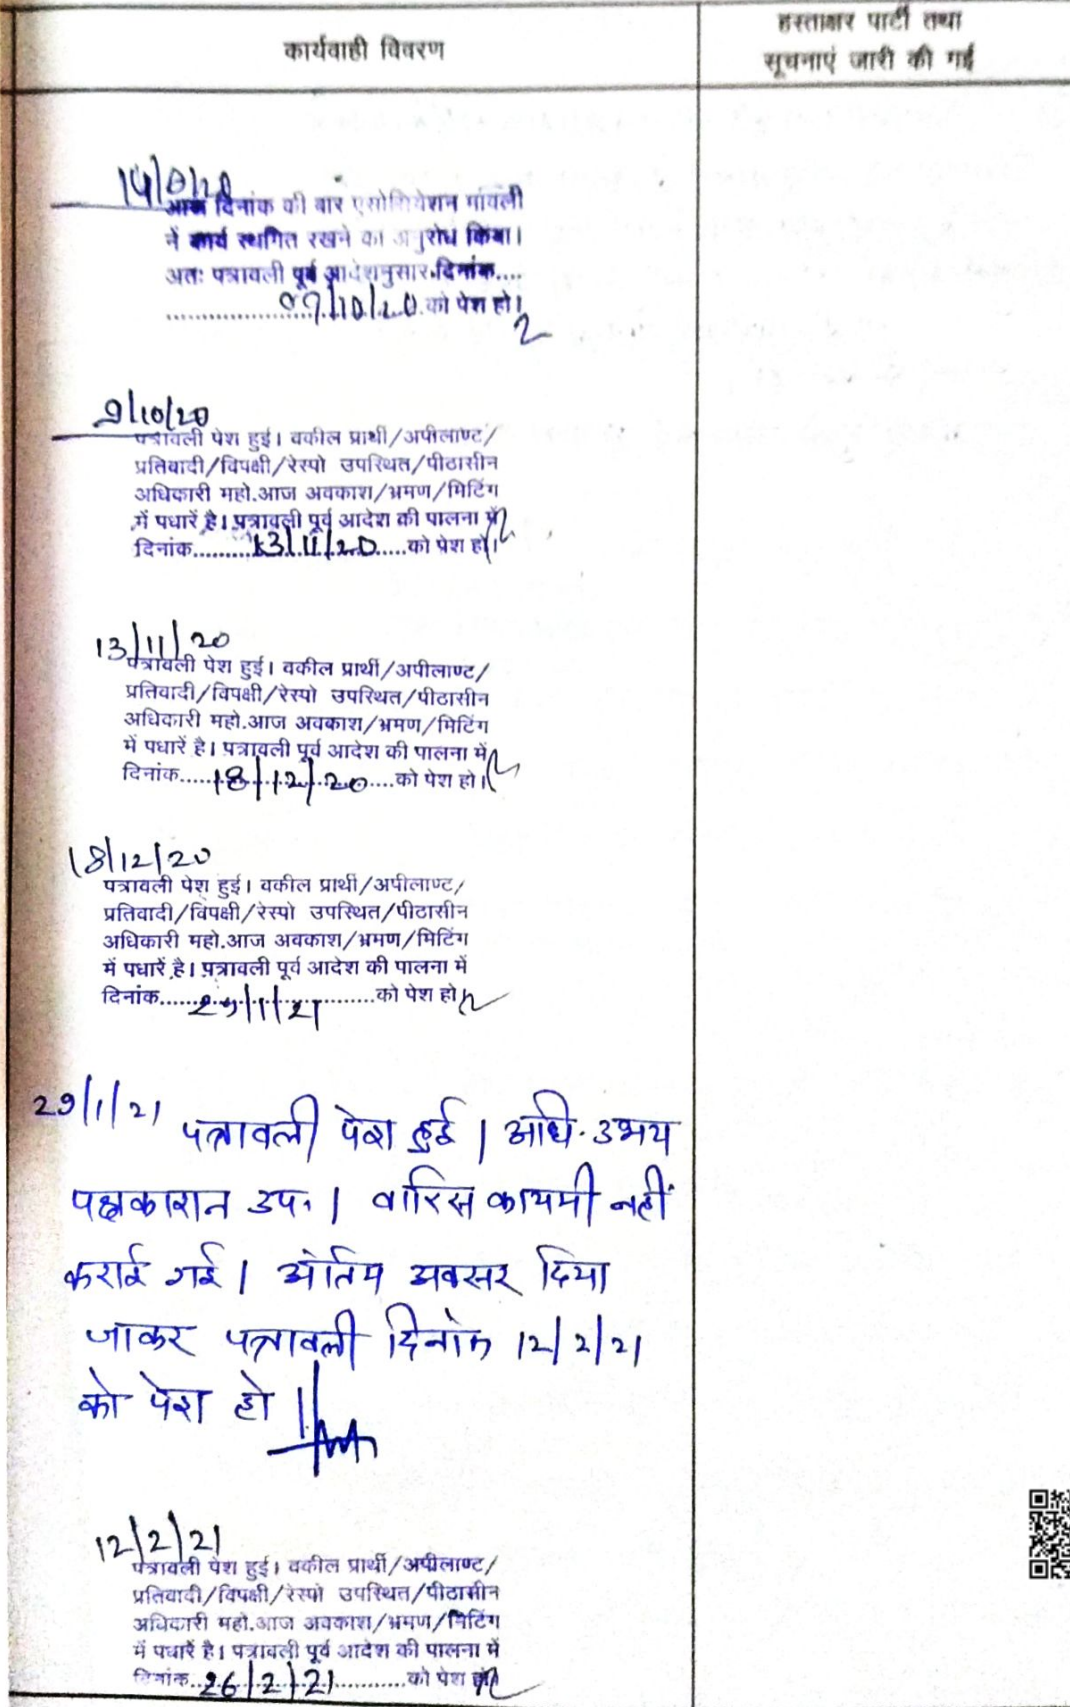 कार्यवाही विवरण
हस्ताक्षर पार्टी तथा
सूचनाएं जारी की गई
आज दिनांक की बार एसोसियेशन
नें कार्य स्थगित रखने का अनुरोध किया।
अतः पत्रावली पूर्व आदेशनुसार दिनांक....
09/10/20 को पेश हो।
9/10/20
पत्रावली पेश हुई। वकील प्रार्थी/अपीलाण्ट/
प्रतिवादी/विपक्षी/रेस्पो उपस्थित/पीठासीन
अधिकारी महो.आज अवकाश/भ्रमण/मिटिंग
में पधारें है। पत्रावली पूर्व आदेश की पालना में
दिनांक.........13/11/20.....को पेश हो।
13/11/20
पत्रावली पेश हुई। वकील प्रार्थी/अपीलाण्ट/
प्रतिवादी/विपक्षी/रेस्पो उपस्थित/पीठासीन
अधिकारी महो.आज अवकाश/भ्रमण/मिटिंग
में पधारें है। पत्रावली पूर्व आदेश की पालना में
दिनांक.....18/12/20....को पेश हो।
18/12/20
पत्रावली पेश हुई। वकील प्रार्थी/अपीलाण्ट/
प्रतिवादी/विपक्षी/रेस्पो उपस्थित/पीठासीन
अधिकारी महो.आज अवकाश/भ्रमण/मिटिंग
में पधारें है। पत्रावली पूर्व आदेश की पालना में
दिनांक.....29/1/21........को पेश हो।
29/1/21 पत्रावली पेश हुई। अधि. उभय
पक्षकारान उप.। वारिस कायमी नहीं
कराई गई। अंतिम अवसर दिया
जाकर पत्रावली दिनांक 12/2/21
को पेश हो।
12/2/21
पत्रावली पेश हुई। वकील प्रार्थी/अपीलाण्ट/
प्रतिवादी/विपक्षी/रेस्पो उपस्थित/पीठासीन
अधिकारी महो.आज अवकाश/भ्रमण/मिटिंग
में पधारें है। पत्रावली पूर्व आदेश की पालना में
दिनांक..26/2/21..........को पेश हो।